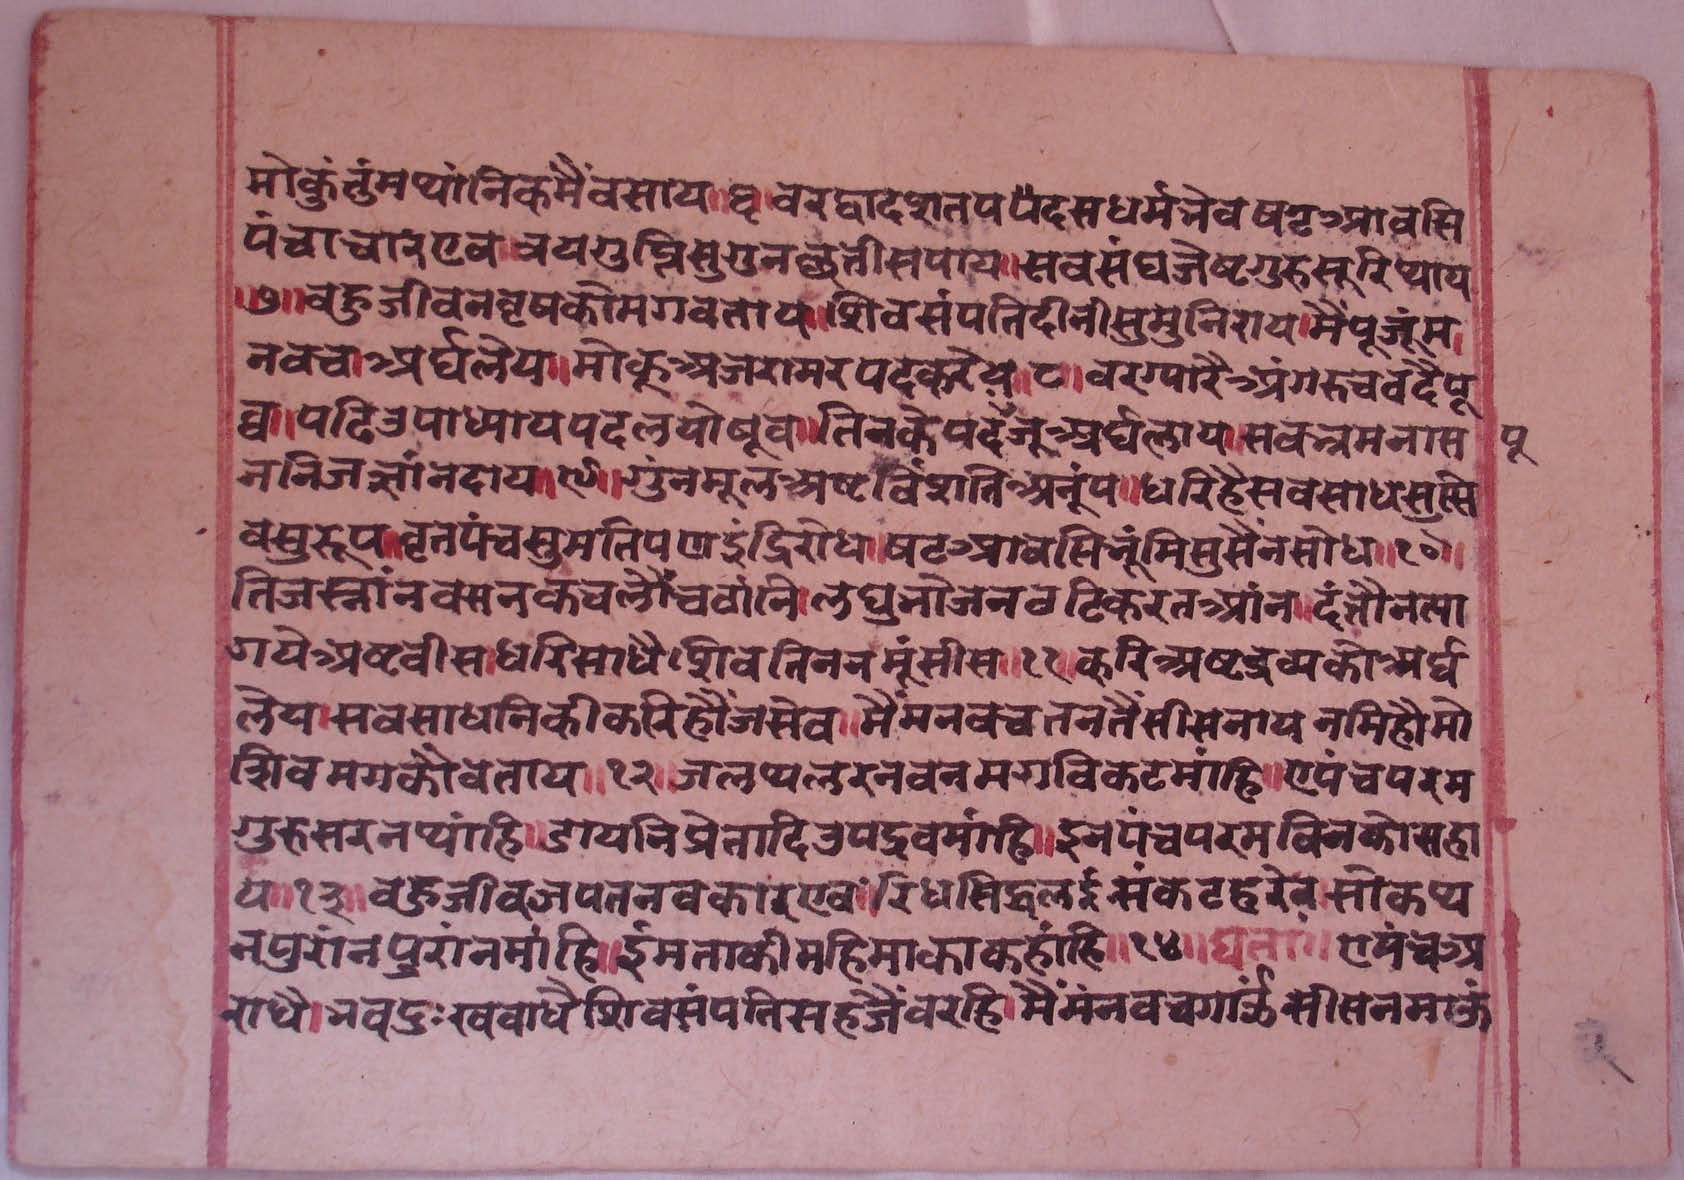 मोकुंतुंमथ्यांनिकमैंवसाय॥६॥वरद्वादशतपपैदसधर्मनेवषट्आवसि
पंचाचारएव त्रयगुप्तिसुगुनछतीसपाय॥सवसंघजेष्टगुरुसूरिथाय
॥७॥वहुजीवनवृषकोमगवताय॥शिवसंपतिदीनीसुमुनिराय।मैंपूजूंम
नवच।अर्घलेय॥मोकूअजरामरपदकरेय॥८॥वरग्यारैअंगरुचवदैपू
व॥पढिउपाध्यायपदलयोषूव॥तिनकेपदैंजूअर्घलाय।सवकन्नमनास पू
ननिजज्ञांनदाय॥९॥गुंनमूलअष्टविंशतिअनूंप॥धरिहैसवसाधसुसि
वसुरूप।वृतपंचसुमतिपणइंद्रिरोध॥षटआवसिनूंमिसुसैंनसोध॥१०॥
तिजस्नांनवसनकचलौंचवांनि।लघुनोजनवटिकरतआंन।दंतौनत्या
गयेअष्टवीस।धरिसाधैशिवतिननमूंसीस॥११॥करिअष्टद्रव्यकोअर्घ
लेय।सवसाधनिकीकरिहौंजसेव॥मैंमनवचतनतैंसीसनाय नमिहौमो
शिवमगकौवताय॥१२॥जलथलरनवनमगविकटमांहि॥एपंचपरम
गुरुसरनथांहि॥डायनिप्रेतादिउपद्रवमांहि॥इनपंचपरमविनकोसहा
य॥१३॥वहुजीवजपतनवकारएव।रिधसिद्धलईसंकटहरेव सोकथ
नपुरांनपुरांनमांहि॥ईमताकीमहिमाकाकहांहि॥१४॥घता॥एपंचअ
राधै।नवदुःखवाधैशिवसंपतिसहजैंवरहि।मैंमंनवचगाऊंसीसनमाऊं